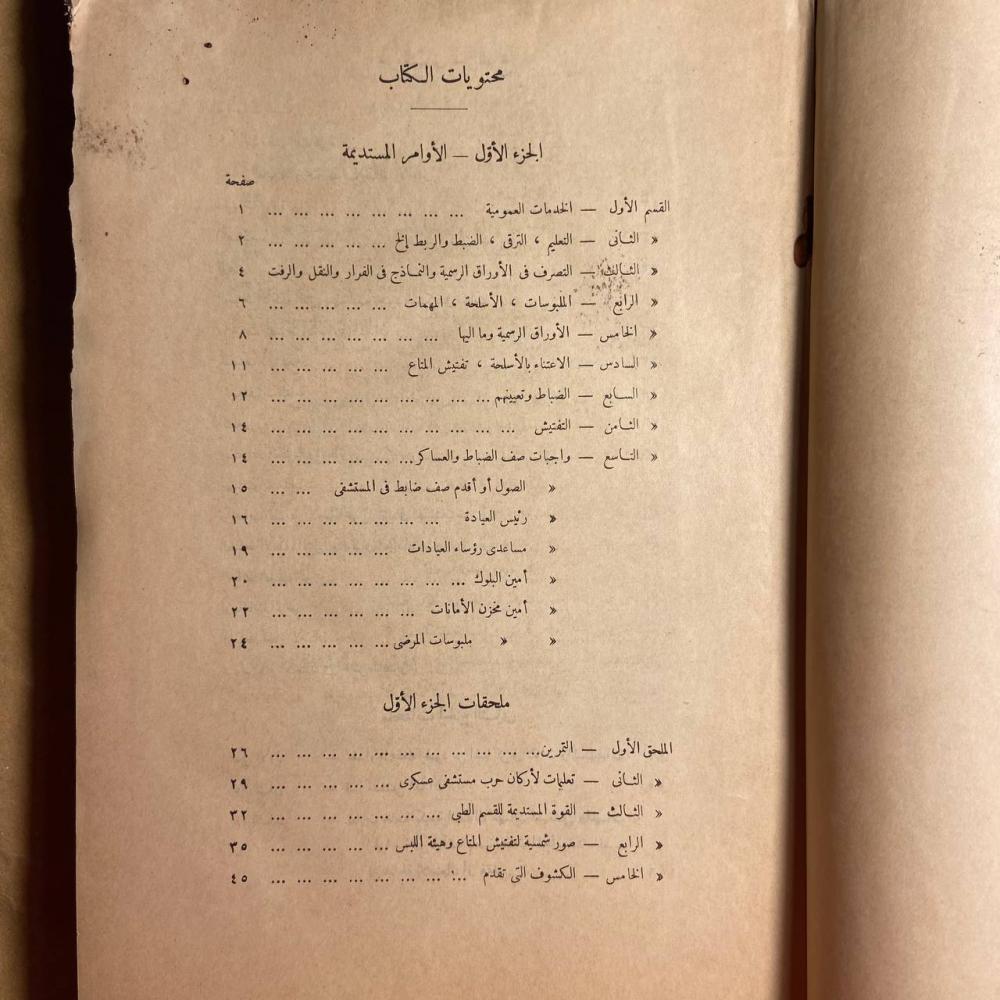 محتويات الكتاب
الجزء الأوّل — الأوامر المستديمة
صفحة
القسم الأول — الخدمات العمومية ... ... ... ... ... ... ... ... ١
« الثانى — التعليم ، الترقى ، الضبط والربط إلخ ... ... ... ... ... ٢
« الثالث — التصرف فى الأوراق الرسمية والنماذج فى الفرار والنقل والرفت ٤
« الرابع — الملبوسات ، الأسلحة ، المهمات ... ... ... ... ... ٦
« الخامس — الأوراق الرسمية وما اليها ... ... ... ... ... ... ... ٨
« السادس — الاعتناء بالأسلحة ، تفتيش المتاع ... ... ... ... ... ١١
« السابع — الضباط وتعيينهم ... ... ... ... ... ... ... ... ... ١٢
« الثامن — التفتيش ... ... ... ... ... ... ... ... ... ... ١٤
« التاسع — واجبات صف الضباط والعساكر ... ... ... ... ... ... ١٤
« الصول أو أقدم صف ضابط فى المستشفى ... ... ١٥
« رئيس العيادة ... ... ... ... ... ... ... ١٦
« مساعدى رؤساء العيادات ... ... ... ... ... ١٩
« أمين البلوك ... ... ... ... ... ... ... ... ٢٠
« أمين مخزن الأمانات ... ... ... ... ... ... ٢٢
« « ملبوسات المرضى ... ... ... ... ... ٢٤
ملحقات الجزء الأوّل
الملحق الأول — التمرين ... ... ... ... ... ... ... ... ... ... ... ٢٦
« الثانى — تعليمات لأركان حرب مستشفى عسكرى ... ... ... ... ... ٢٩
« الثالث — القوة المستديمة للقسم الطبى ... ... ... ... ... ... ... ٣٢
« الرابع — صور شمسية لتفتيش المتاع وهيئة اللبس ... ... ... ... ... ٣٥
« الخامس — الكشوف التى تقدم ... ... ... ... ... ... ... ... ٤٥